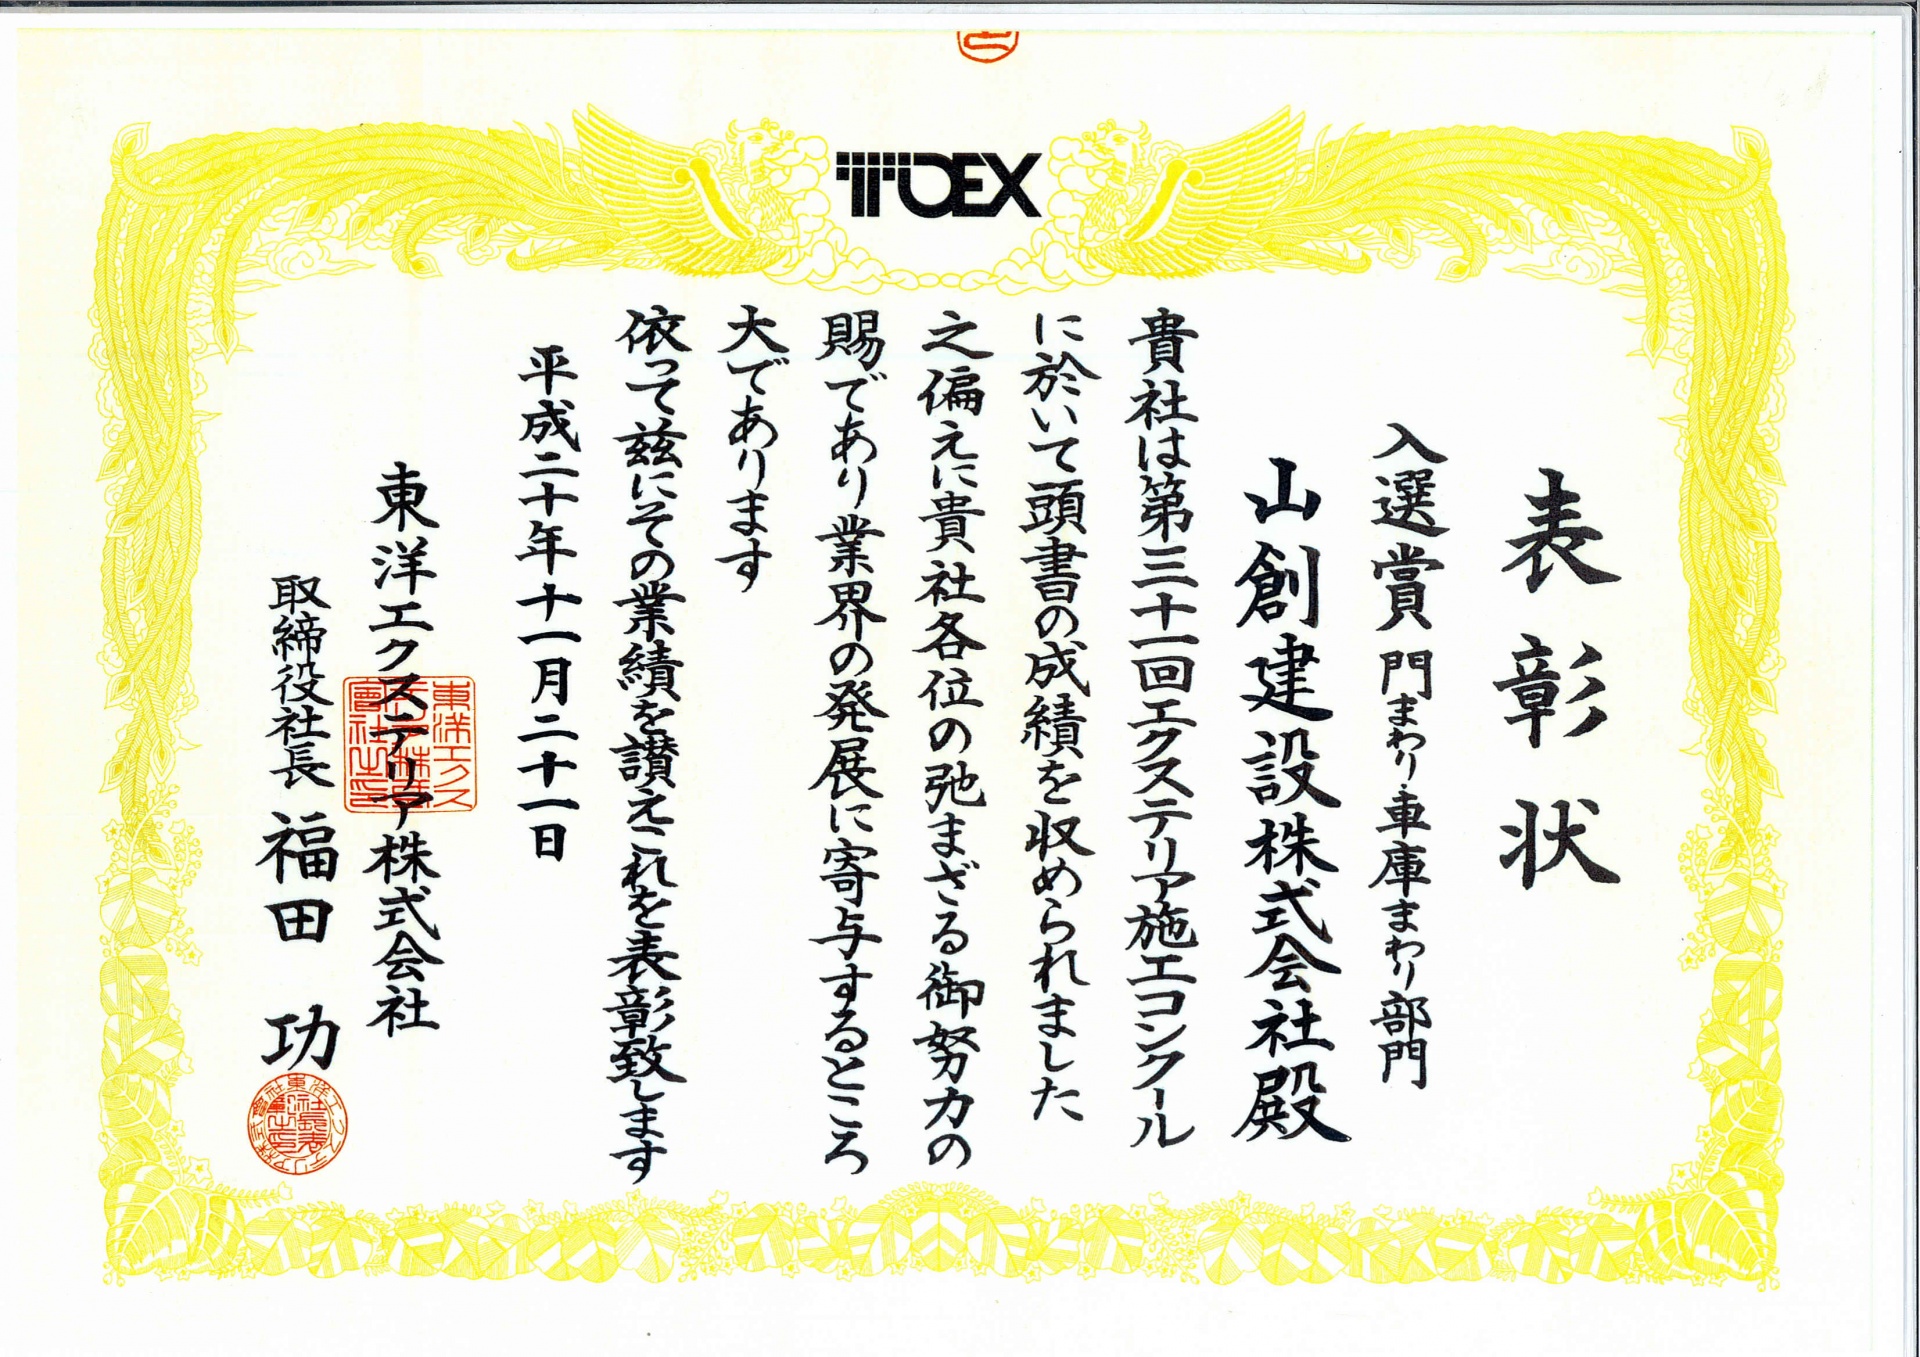 TOEX
表彰状
入選賞 門まわり・車庫まわり部門
山創建設株式会社殿
貴社は第三十一回エクステリア施工コンクール
に於いて頭書の成績を収められました
之偏えに貴社各位の弛まざる御努力の
賜であり業界の発展に寄与するところ
大であります
依って茲にその業績を讃えこれを表彰致します
平成二十年十一月二十一日
東洋エクステリア株式会社
取締役社長 福田 功